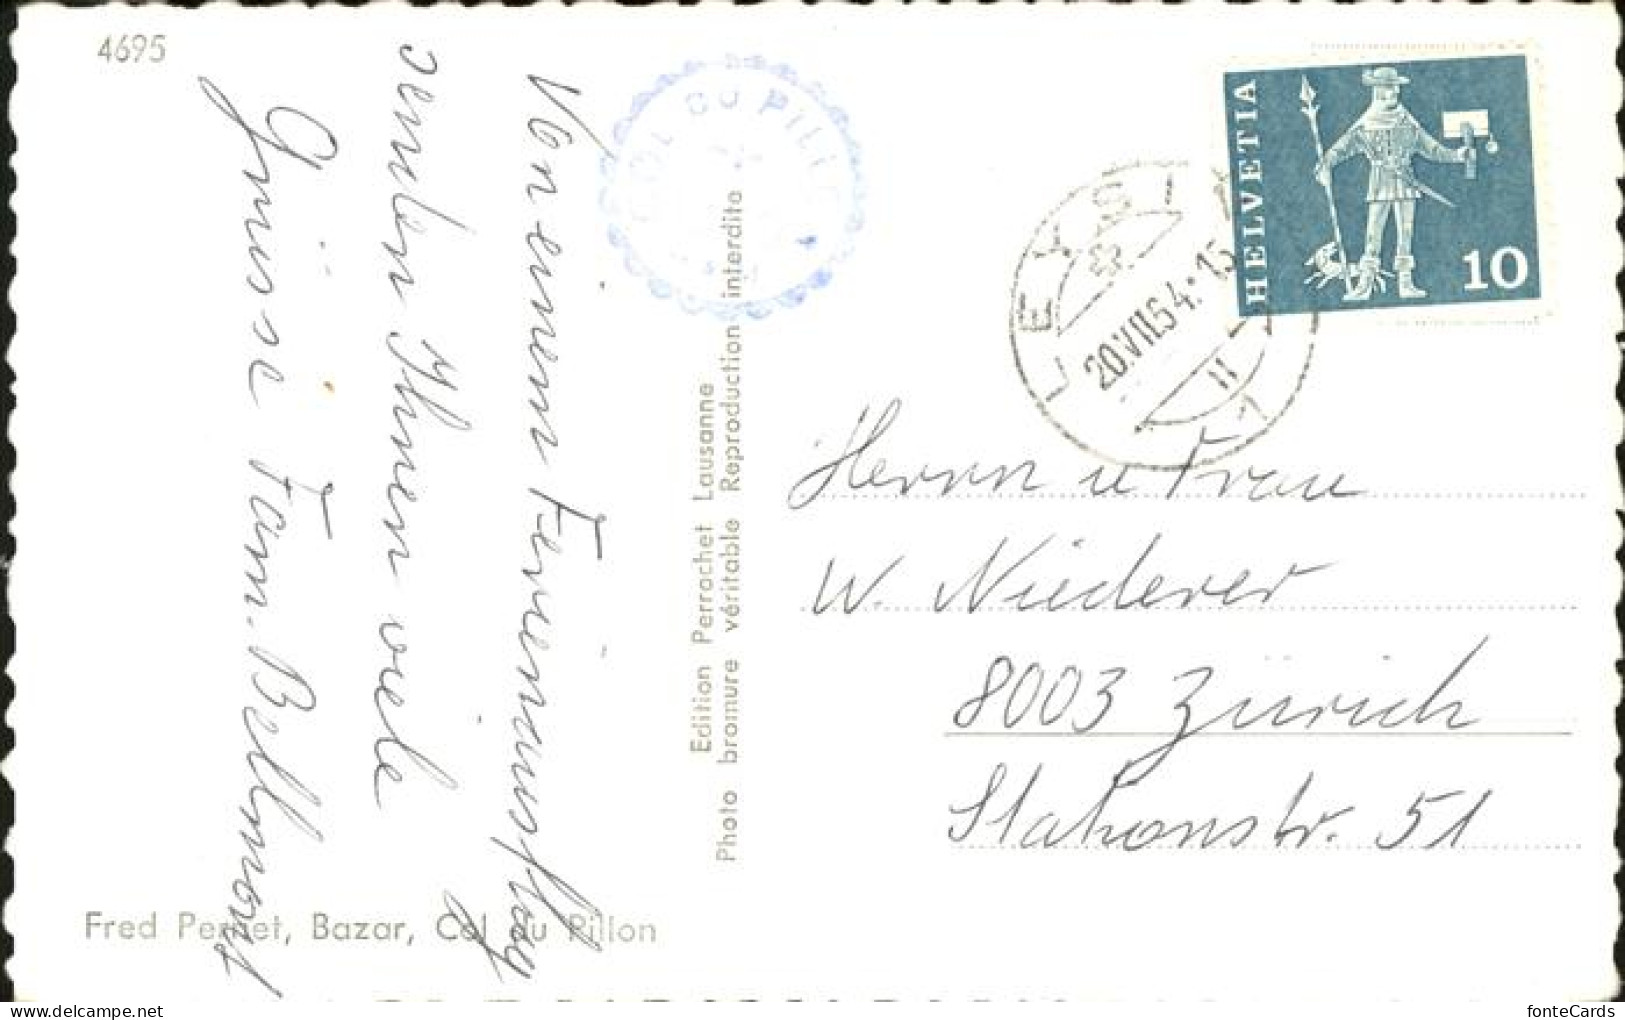 4695
Von einem Ferienausflug
senden Ihnen viele
Grüsse Fam. Bellmont
COL DU PILLON
Edition Perrochet Lausanne
Photo bromure véritable Reproduction interdite
HELVETIA
10
LEYSIN
20.VII.64.-15
1
Herrn u Frau
W. Niederer
8003 Zürich
Stationstr. 51
Fred Pernet, Bazar, Col du Pillon
fonteCards